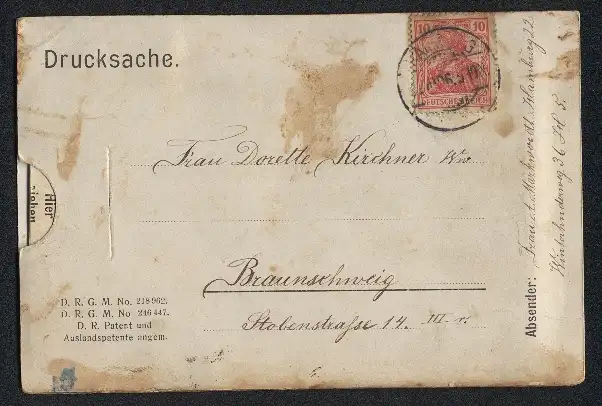 Drucksache.
10 10
DEUTSCHES REICH
Frau Dorette Kirchner Ww.
Hier
ziehen
Braunschweig
Stobenstraße 14. III r.
D. R. G. M. No. 218962.
D. R. G. M. No 246447.
D. R. Patent und
Auslandspatente angem.
Absender: Frau Hamburg 22
36